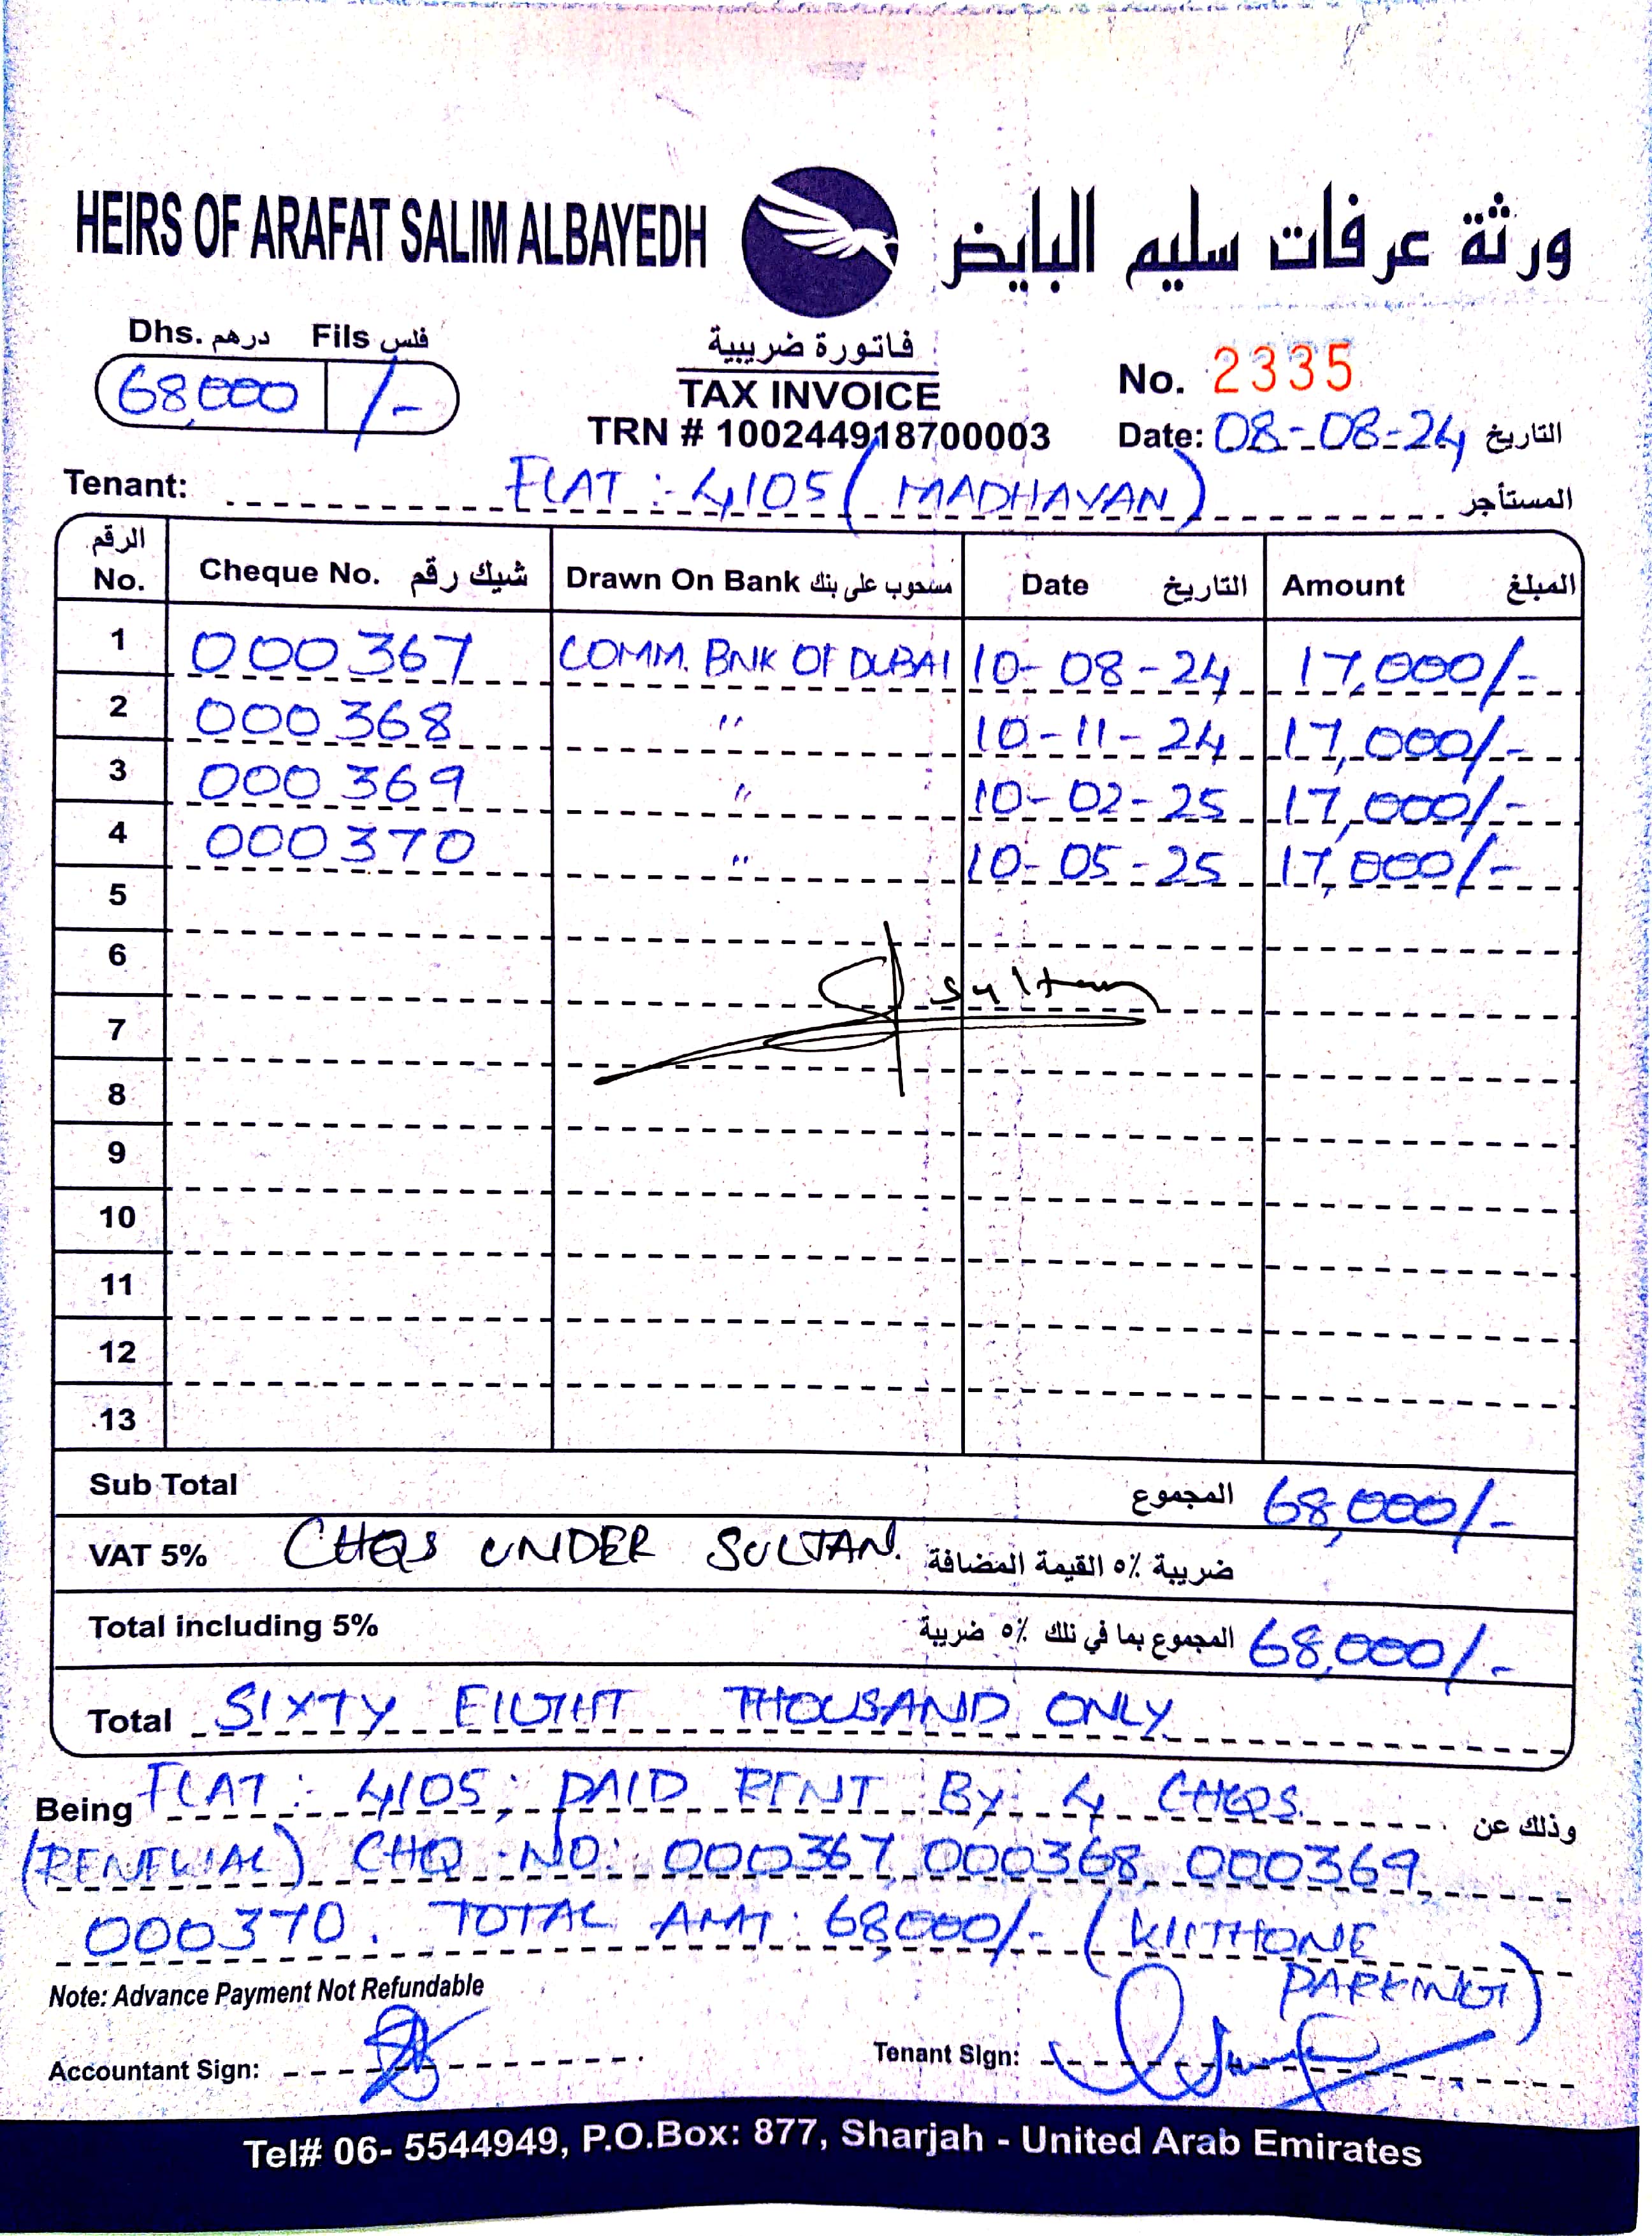 HEIRS OF ARAFAT SALIM ALBAYEDH ورثة عرفات سليم البايض
Dhs. درهم Fils فلس
68,000 /-
فاتورة ضريبية
TAX INVOICE
TRN # 100244918700003
No. 2335
Date: 08-08-24 التاريخ
Tenant: FLAT :- 4105 ( MADHAVAN ) المستأجر
الرقم No. Cheque No. شيك رقم Drawn On Bank مسحوب على بنك Date التاريخ Amount المبلغ
1 000367 COMM. BNK OF DUBAI 10-08-24 17,000/-
2 000368 " 10-11-24 17,000/-
3 000369 " 10-02-25 17,000/-
4 000370 " 10-05-25 17,000/-
5
6
Sultan
7
8
9
10
11
12
13
Sub Total المجموع 68,000/-
VAT 5% CHQS UNDER SULTAN. ضريبة ٥٪ القيمة المضافة
Total including 5% المجموع بما في ذلك ٥٪ ضريبة 68,000/-
Total SIXTY EIGHT THOUSAND ONLY
Being FLAT : 4105; PAID RENT By: 4 CHQS. وذلك عن
(RENEWAL) CHQ NO: 000367, 000368, 000369,
000370. TOTAL AMT: 68,000/- (
PARKING)
Note: Advance Payment Not Refundable
Accountant Sign:
Tenant Sign:
Tel# 06- 5544949, P.O.Box: 877, Sharjah - United Arab Emirates